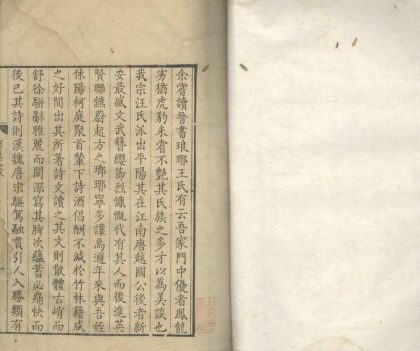 余嘗讀晉書琅琊王氏有云吾家門中優者鳳龍
劣猶虎豹未嘗不艷其氏族之多才以為美談也
我宗汪氏派出平陽其在江南唐越國公後者新
安最盛文武簪纓節烈慷慨代有其人而後進英
賢聯鑣蔚起方之瑯琊寧多讓焉邇年來與吾姪
休陽柯庭聚首輦下詩酒倡酬不減於竹林籍咸
之好間出其所著詩文讀之其文則散體古峭而
舒徐駢辭雅麗而閎深寫其胸次蘊蓄必痛快而
後已其詩則漢魏唐宋驅駕融貫引人入勝類有